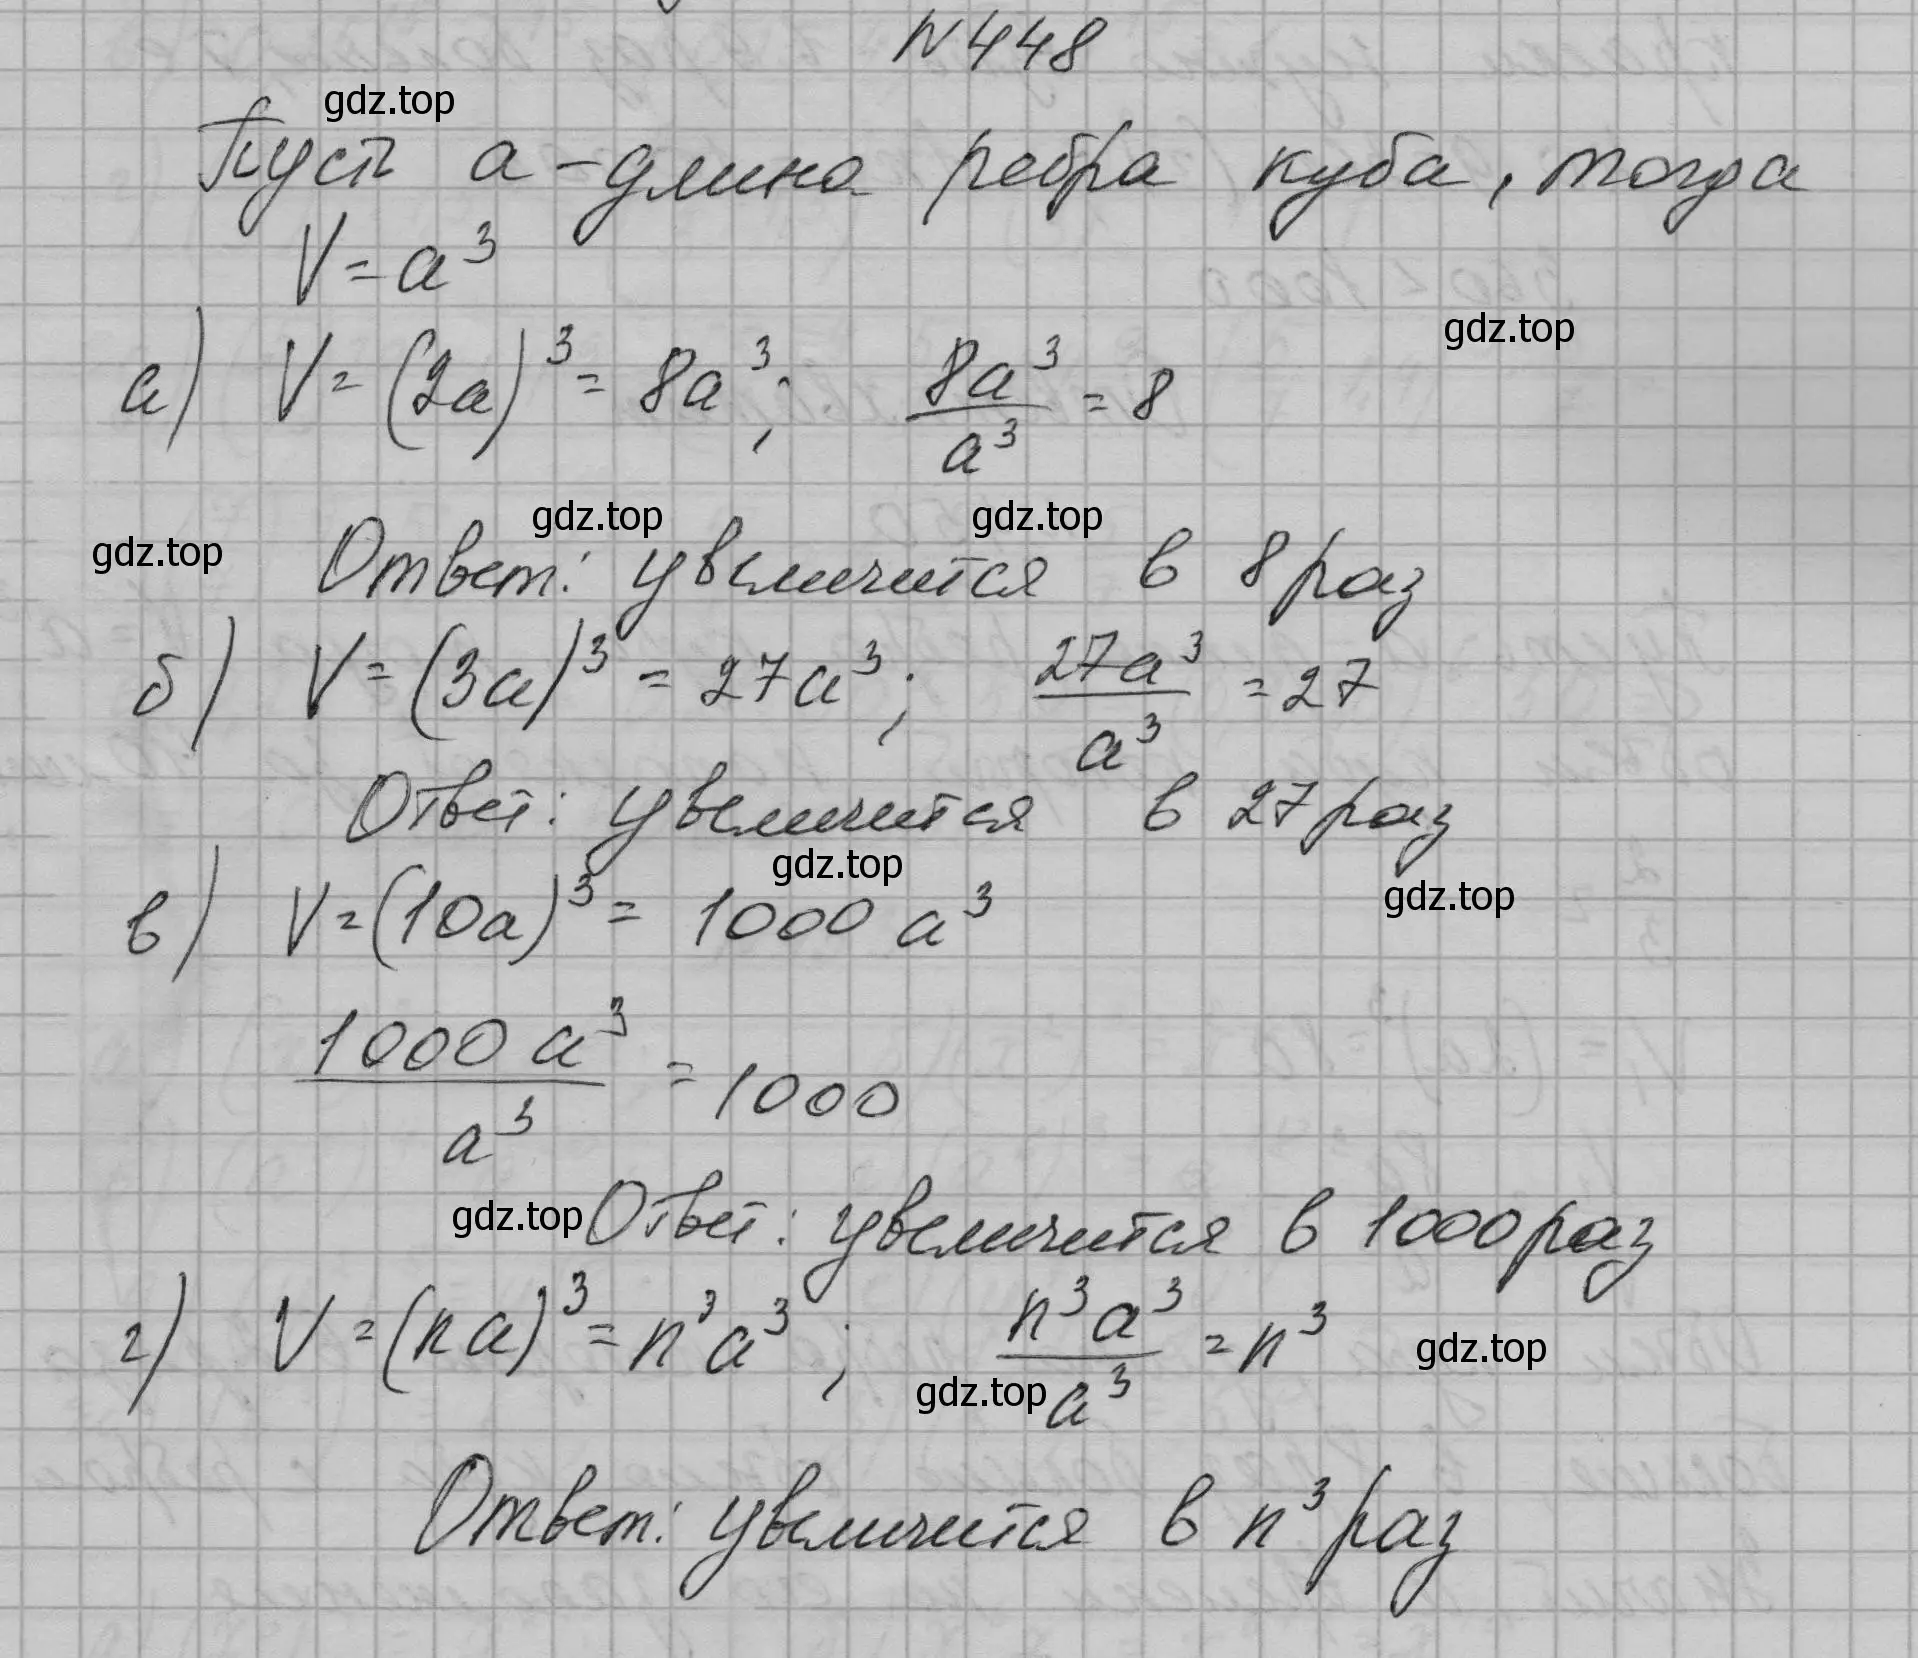 N 448
gdz.top
Пусть a - длина ребра куба, тогда
V = a³
gdz.top
а) V = (2a)³ = 8a³; 8a³/a³ = 8
gdz.top gdz.top
gdz.top
Ответ: увеличится в 8 раз
б) V = (3a)³ = 27a³; 27a³/a³ = 27
Ответ: увеличится в 27 раз
gdz.top
gdz.top
в) V = (10a)³ = 1000 a³
1000 a³/a³ = 1000
gdz.top
Ответ: увеличится в 1000 раз
г) V = (na)³ = n³a³; n³a³/a³ = n³
gdz.top
gdz.top
Ответ: увеличится в n³ раз